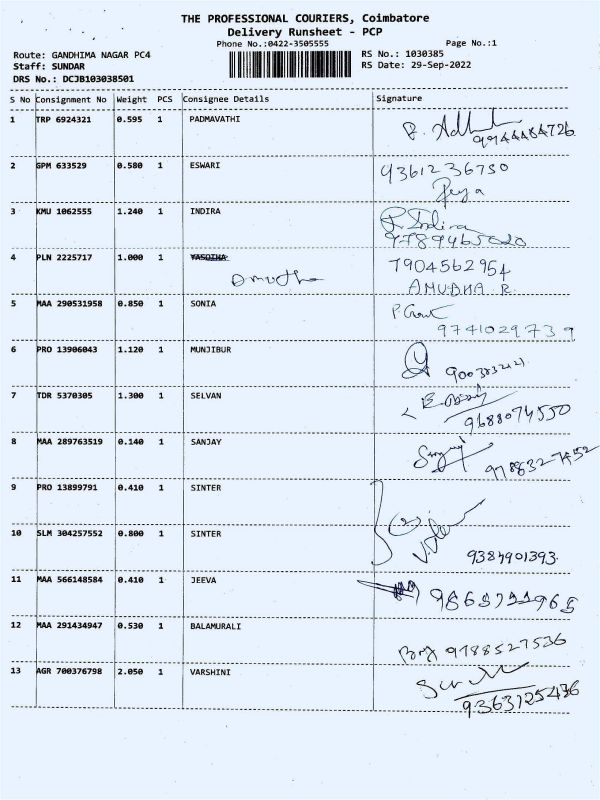 THE PROFESSIONAL COURIERS, Coimbatore
Delivery Runsheet - PCP
Phone No.:0422-3505555
Page No.:1
Route: GANDHIMA NAGAR PC4
RS No.: 1030385
Staff: SUNDAR
RS Date: 29-Sep-2022
DRS No.: DCJB103038501
S No Consignment No Weight PCS Consignee Details Signature
1 TRP 6924321 0.595 1 PADMAVATHI
2 GPM 633529 0.580 1 ESWARI 9361236750
Jeya
3 KMU 1062555 1.240 1 INDIRA P. Indira
4 PLN 2225717 1.000 1 7904562954
ANUBHA R.
5 MAA 290531958 0.850 1 SONIA
9741029739
6 PRO 13906043 1.120 1 MUNJIBUR
7 TDR 5370305 1.300 1 SELVAN
9688074550
8 MAA 289763519 0.140 1 SANJAY Sanjay
9 PRO 13899791 0.410 1 SINTER
(2)
10 SLM 304257552 0.800 1 SINTER
9384901393
11 MAA 566148584 0.410 1 JEEVA
12 MAA 291434947 0.530 1 BALAMURALI
9788527536
13 AGR 700376798 2.050 1 VARSHINI
9363125436